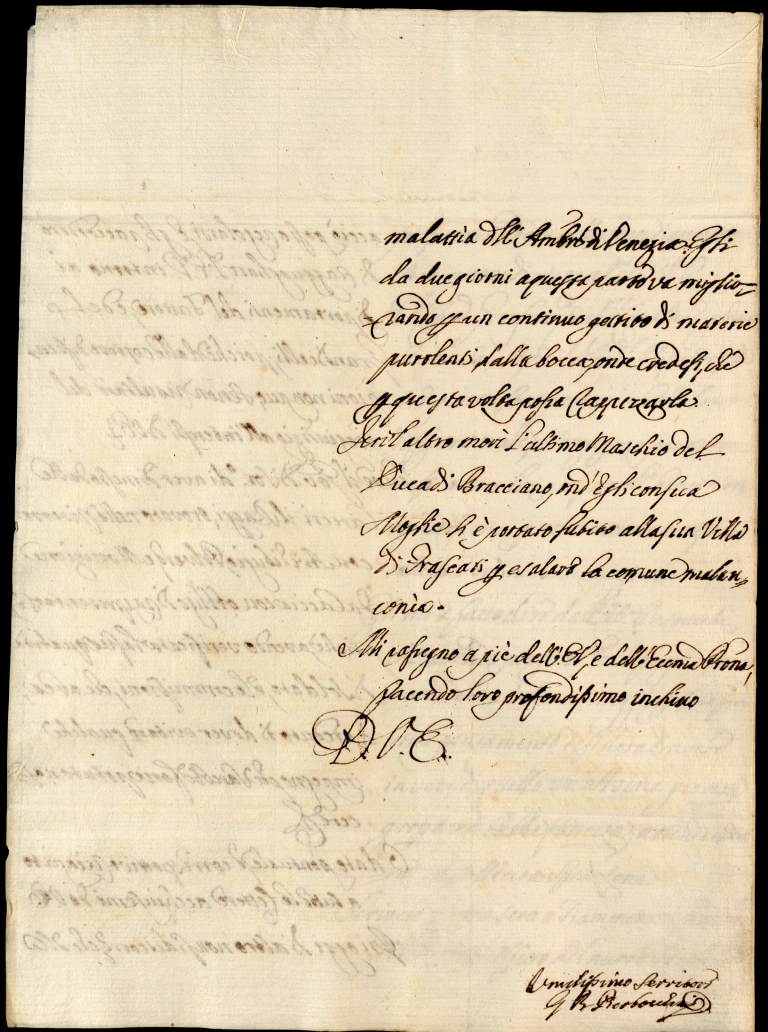 malattia dll' Ambre di Venezia. Egli
da due giorni a questa parte va miglio-
=rando p un continuo gettito di materie
purolenti dalla bocca, onde credesi, che
p questa volta possa
Jeri l'altro morì l'ultimo Maschio del
Duca di Bracciano, ond' Egli con sua
Moglie s'è portato subito alla sua Villa
di Frascati p esalare la comune malan=
conia.
Mi rassegno a piè dell' E.V. e dell' Eccma Prona,
facendo loro profondissimo inchino
D. V. E.
Umilissimo Servitore
G B